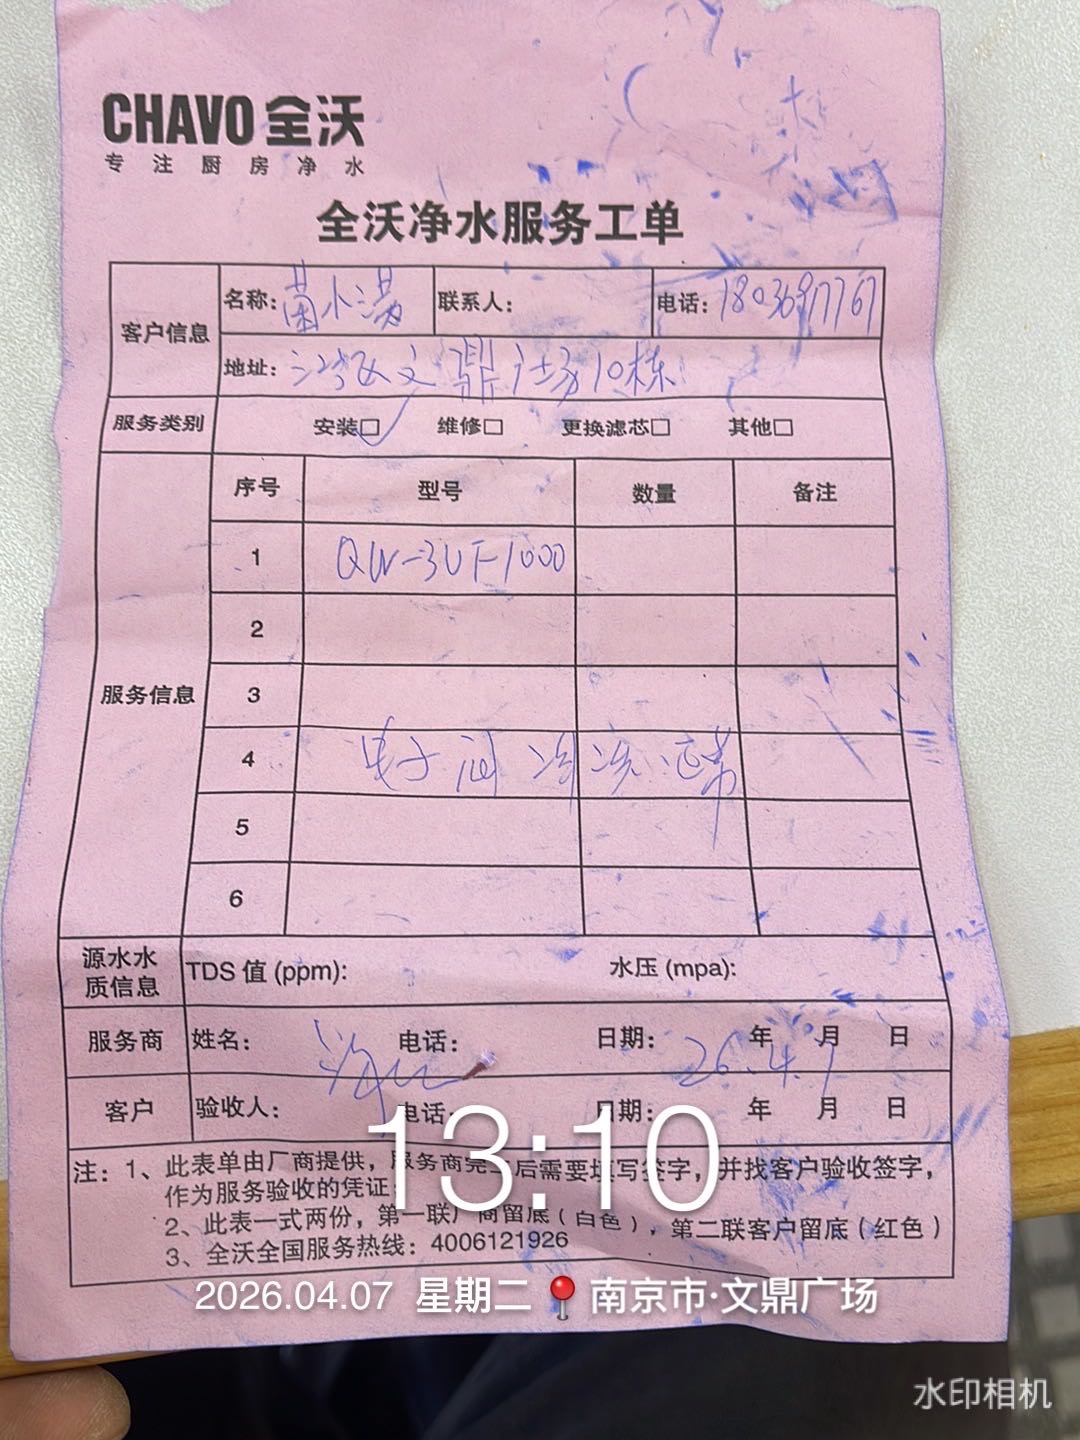 CHAVO 全沃
专注厨房净水
全沃净水服务工单
客户信息 名称：菌小满 联系人： 电话：
地址：文鼎广场10栋
服务类别 安装□ 维修□ 更换滤芯□ 其他□
服务信息 序号 型号 数量 备注
1 QW-3UF-1000
2
3
4 电子阀 冲洗正常
5
6
源水水质信息 TDS 值 (ppm): 水压 (mpa):
服务商 姓名： 电话： 日期： 年 月 日 26.4.7
客户 验收人： 电话: 日期： 年 月 日
13:10
注：1、此表单由厂商提供，服务商完 后需要填写签字，并找客户验收签字，
作为服务验收的凭证；
2、此表一式两份，第一联厂商留底（白色），第二联客户留底（红色）
3、全沃全国服务热线：4006121926
2026.04.07 星期二 南京市·文鼎广场
水印相机